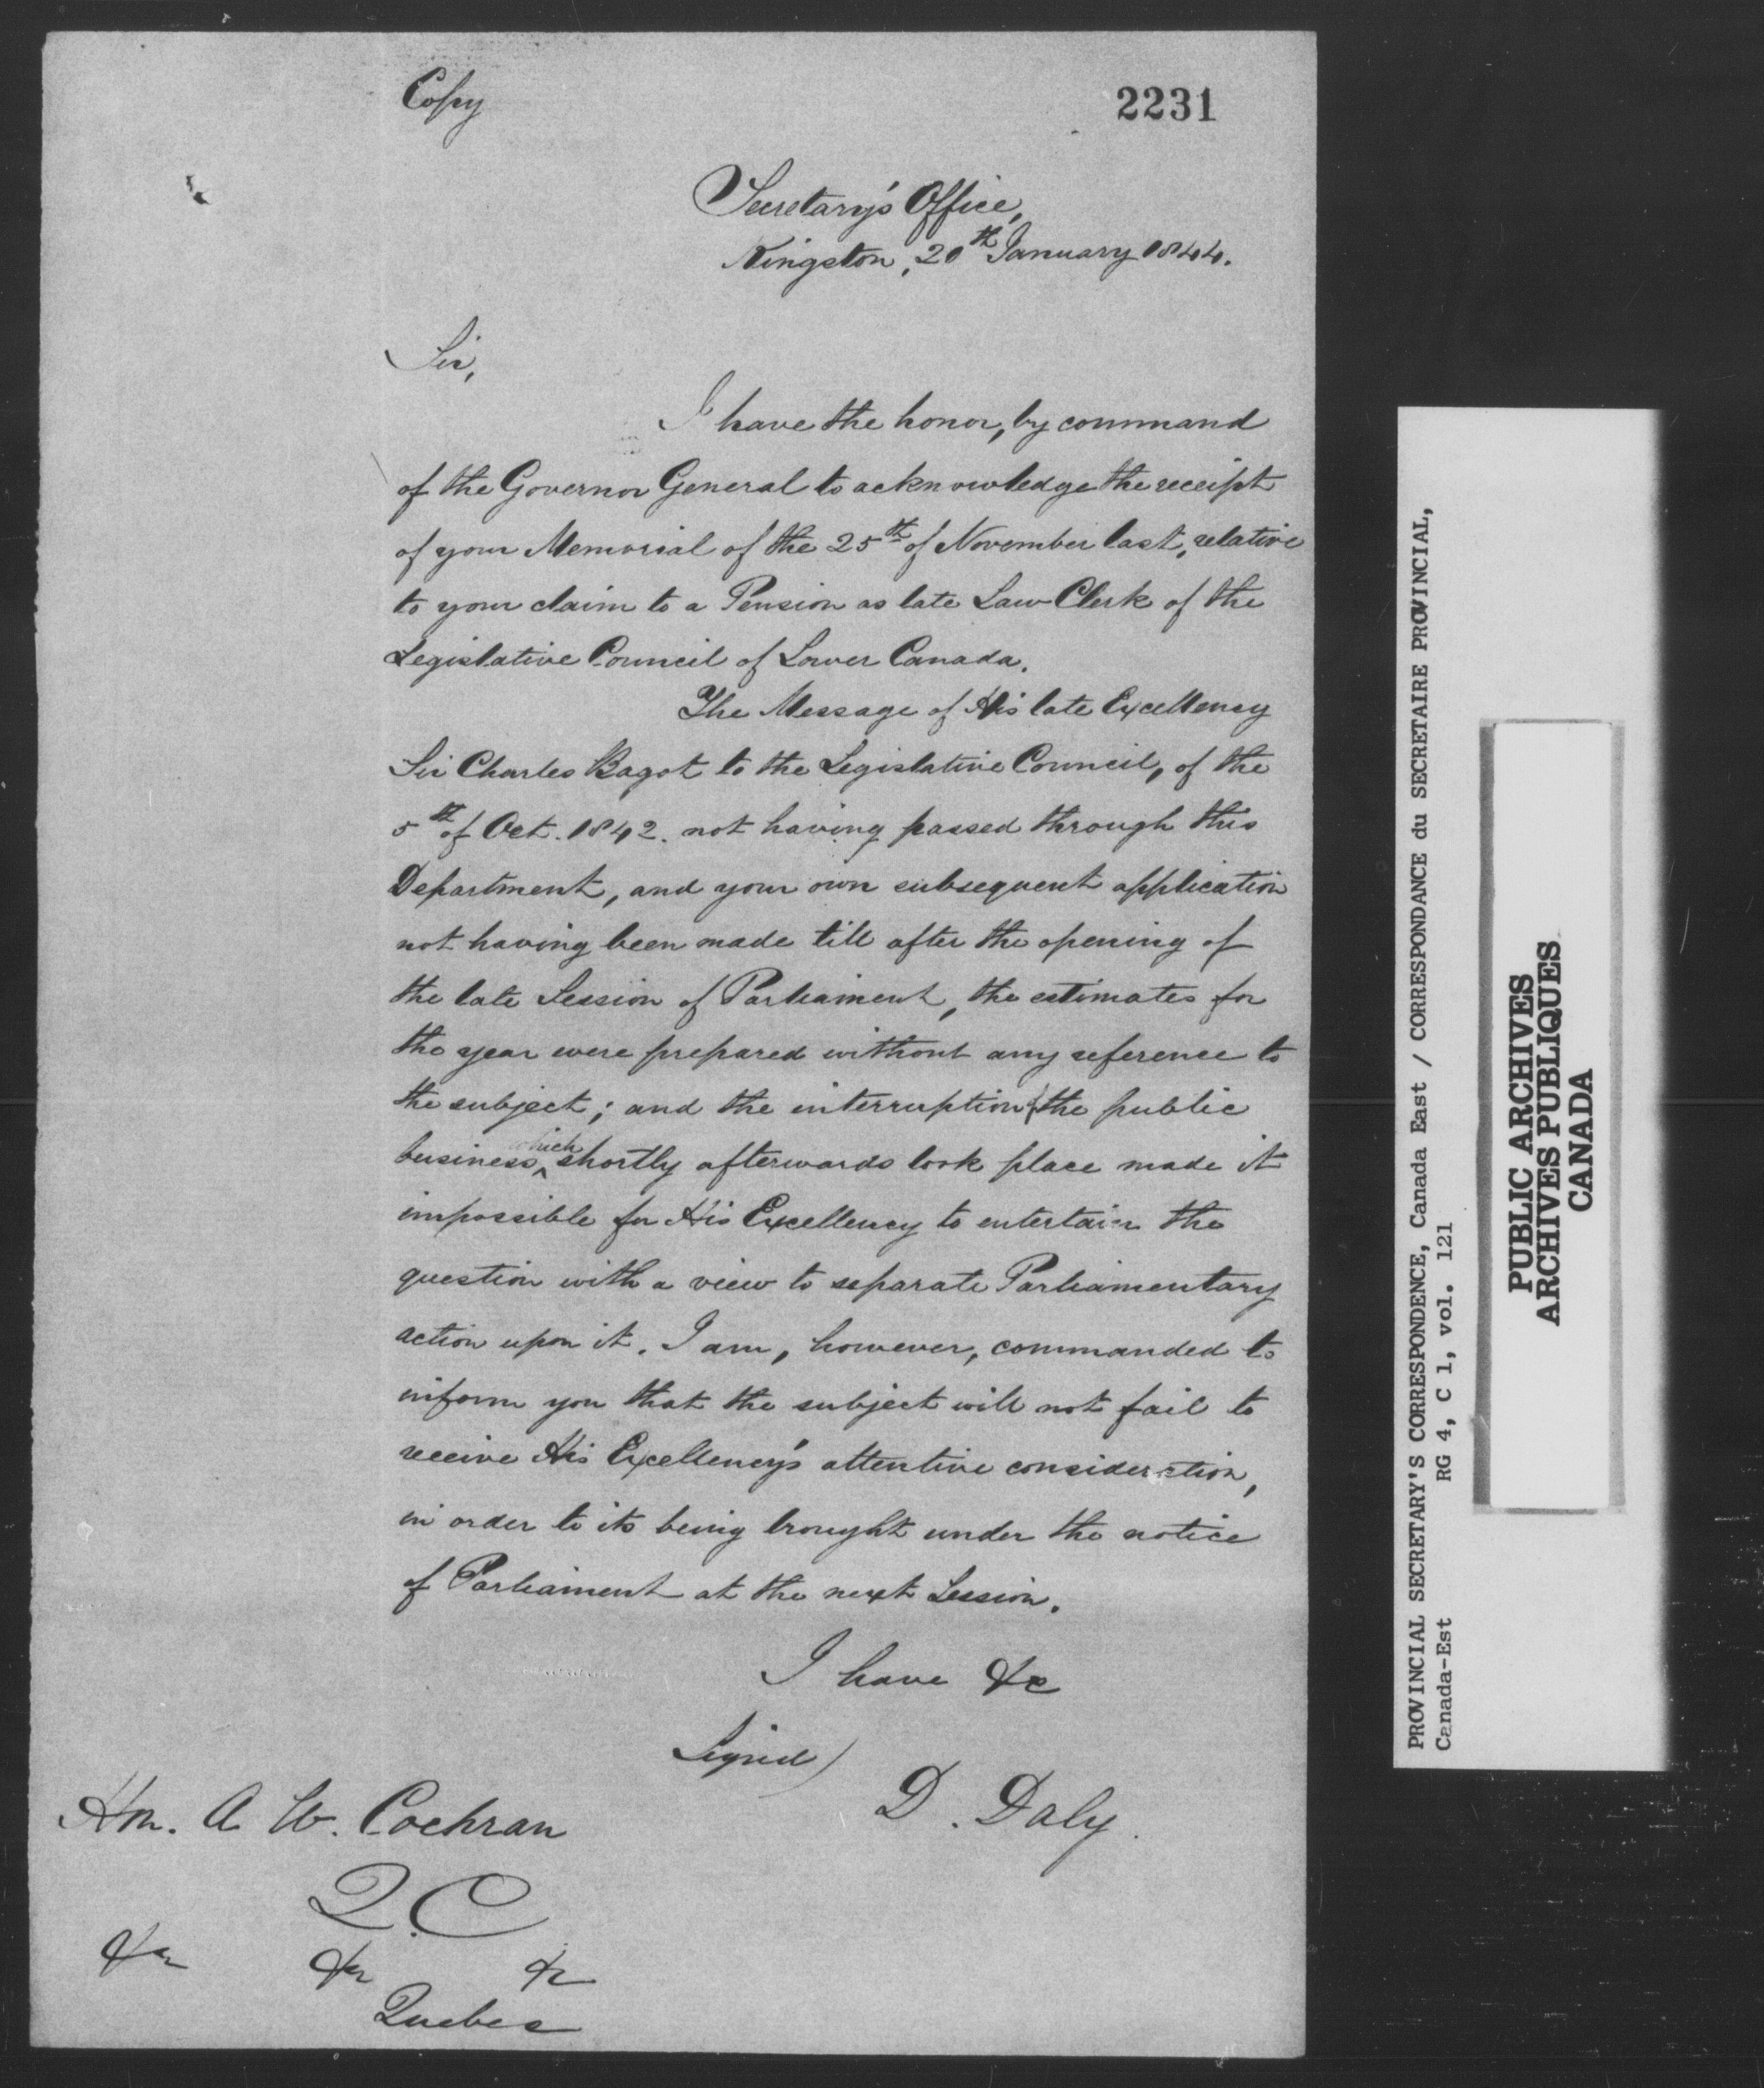 Copy
2231
Secretary's Office,
Kingston, 20th January 1844.
Sir,
I have the honor, by command
of the Governor General to acknowledge the receipt
of your Memorial of the 25th of November last, relative
to your claim to a Pension as late Law Clerk of the
Legislative Council of Lower Canada.
The Message of His late Excellency
Sir Charles Bagot to the Legislative Council, of the
5th of Oct. 1842. not having passed through this
Department, and your own subsequent application
not having been made till after the opening of
the late Session of Parliament, the estimates for
the year were prepared without any reference to
the subject; and the interruption of the public
business which shortly afterwards took place made it
impossible for His Excellency to entertain the
question with a view to separate Parliamentary
action upon it. I am, however, commanded to
inform you that the subject will not fail to
receive His Excellency's attentive consideration,
in order to its being brought under the notice
of Parliament at the next Session.
I have &c
Signed)
D. Daly.
Hon. A W. Cochran
Q.C
&c &c &c
Quebec
PROVINCIAL SECRETARY'S CORRESPONDENCE, Canada East / CORRESPONDANCE du SECRETAIRE PROVINCIAL,
Canada-Est RG 4, C 1, vol. 121
PUBLIC ARCHIVES
ARCHIVES PUBLIQUES
CANADA